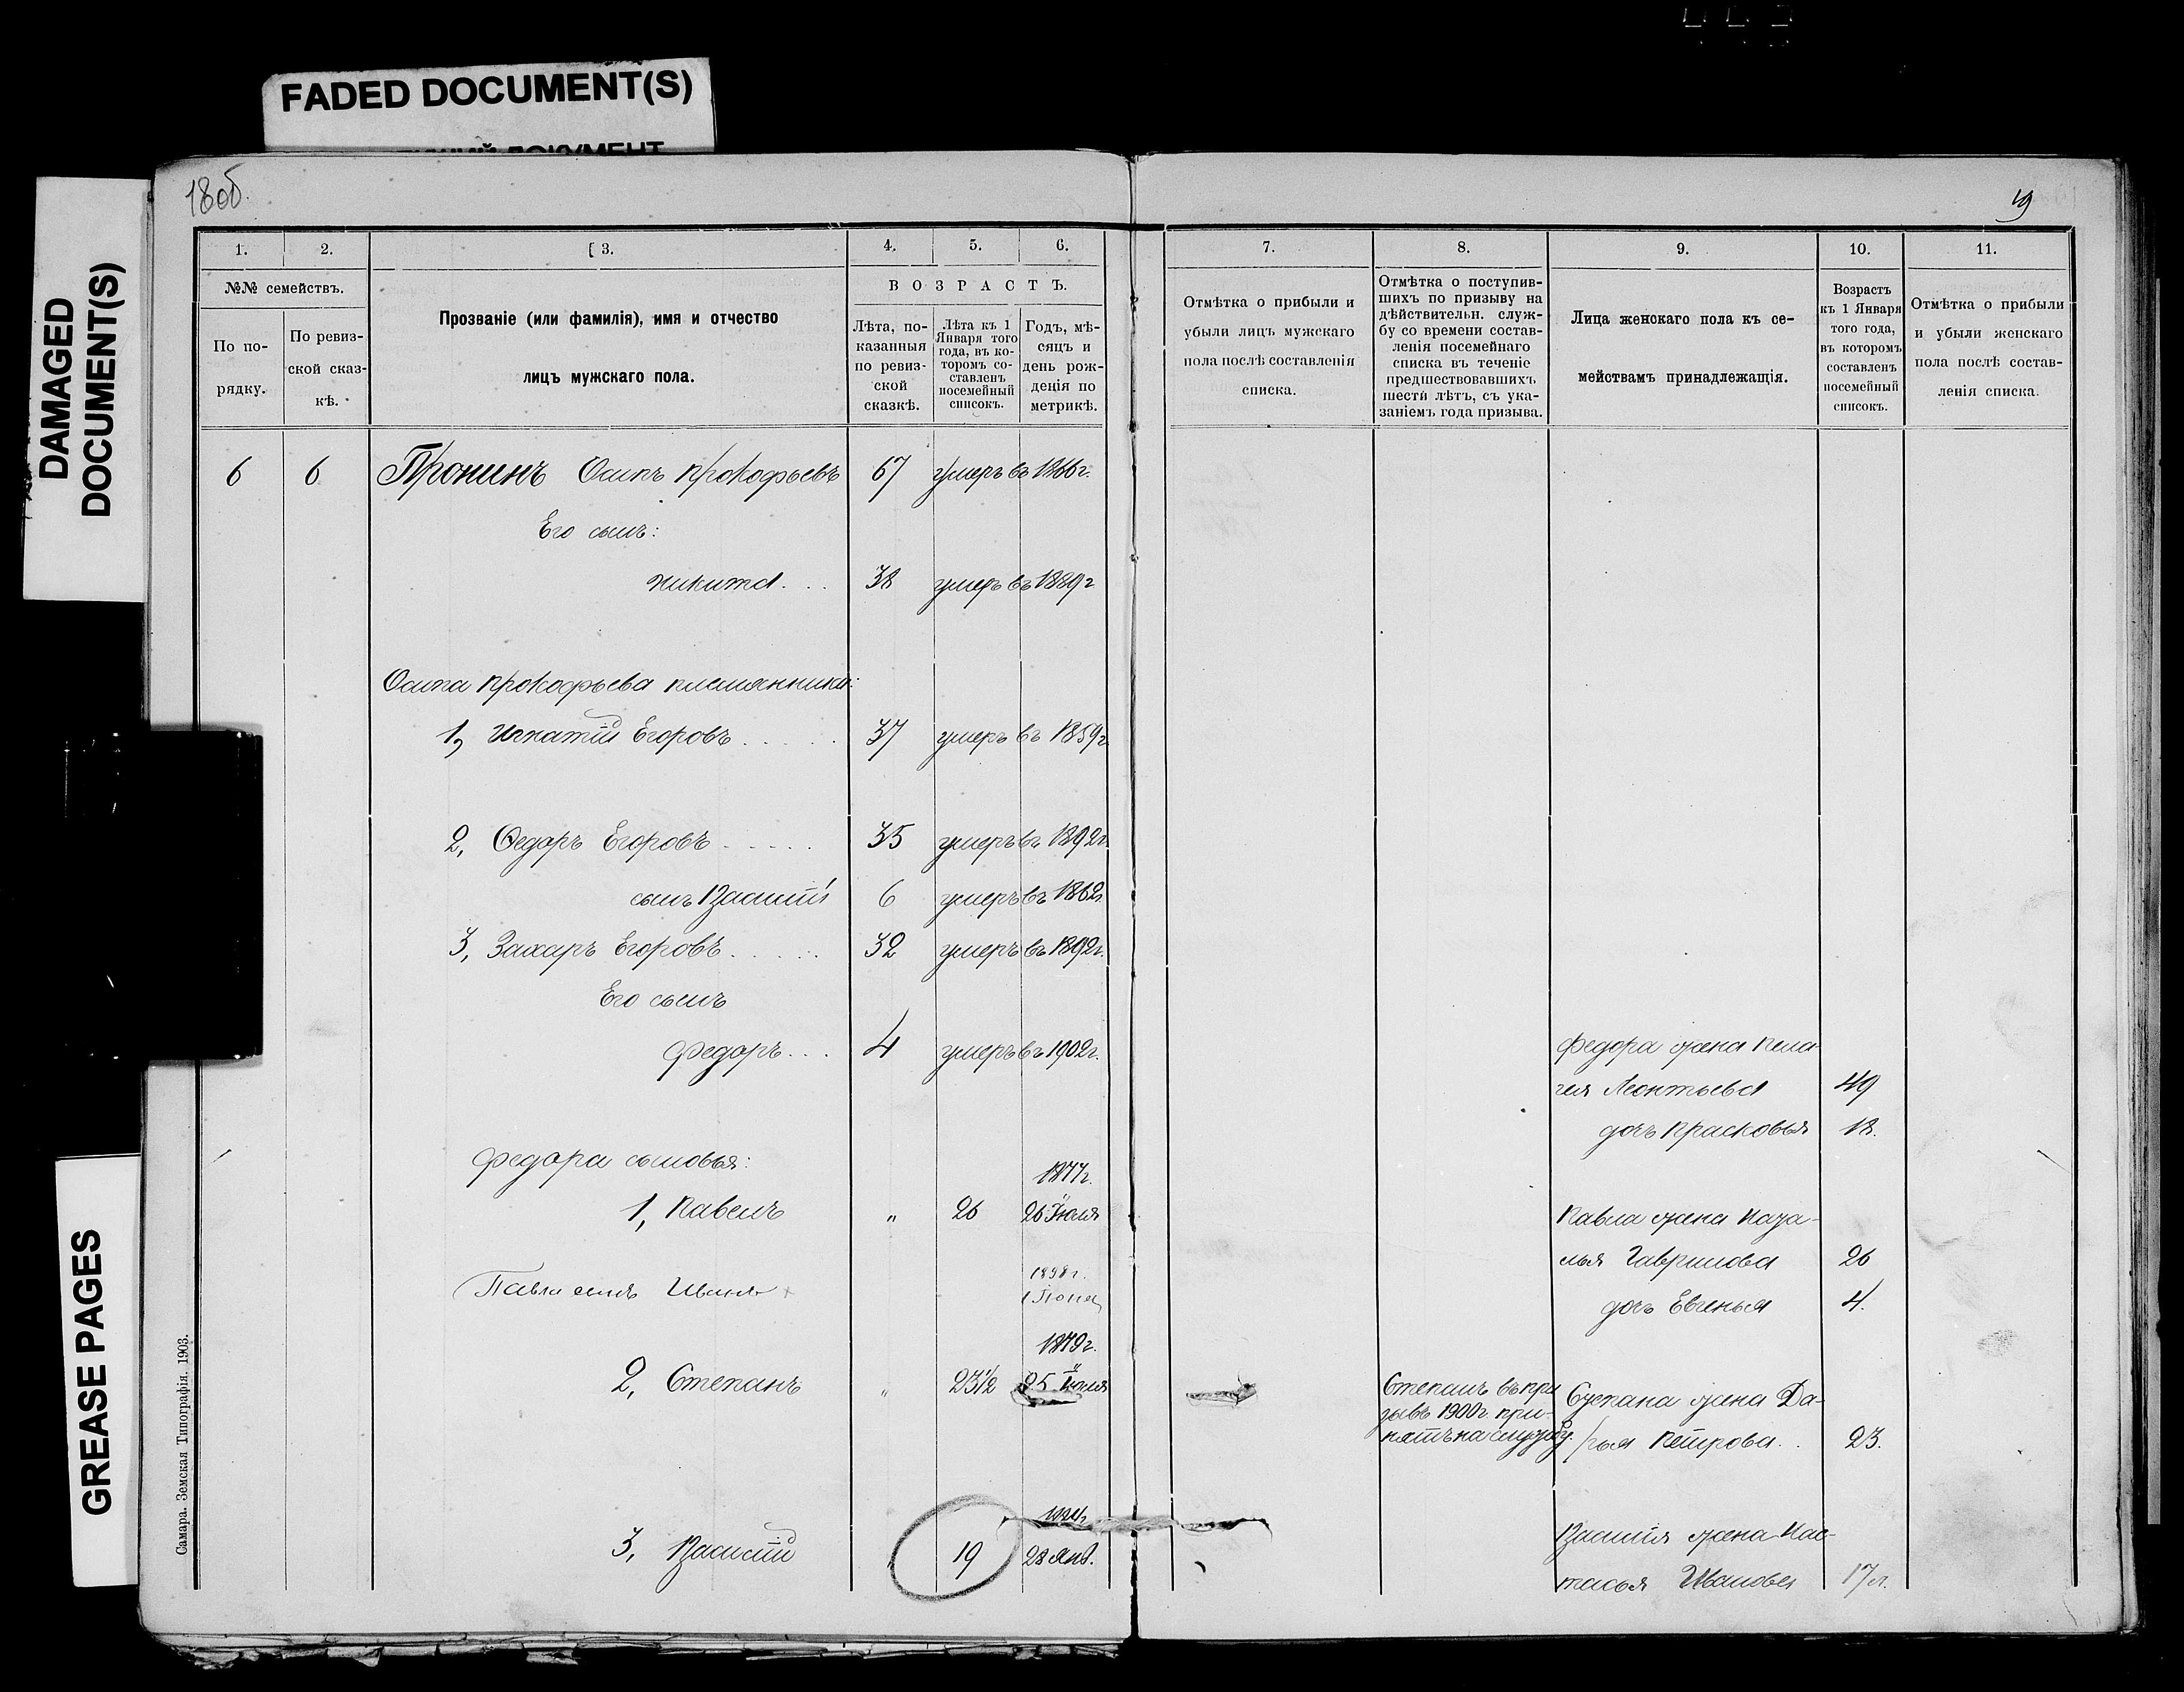 FADED DOCUMENT(S)
DAMAGED
DOCUMENT(S)
GREASE PAGES
18об.
19
1.
2.
3.
4.
5.
6.
7.
8.
9.
10.
11.
№№ семействъ.
По по-
рядку.
По ревиз-
ской сказ-
кѣ.
Прозваніе (или фамилія), имя и отчество
лицъ мужскаго пола.
ВОЗРАСТЪ.
Лѣта, по-
казанныя
по ревиз-
ской
сказкѣ.
Лѣта къ 1
Января того
года, въ ко-
торомъ со-
ставленъ
посемейный
списокъ.
Годъ, мѣ-
сяцъ и
день рож-
денія по
метрикѣ.
Отмѣтка о прибыли и
убыли лицъ мужскаго
пола послѣ составленія
списка.
Отмѣтка о поступив-
шихъ по призыву на
дѣйствительн. служ-
бу со времени состав-
ленія посемейнаго
списка въ теченіе
предшествовавшихъ
шести лѣтъ, съ ука-
заніемъ года призыва.
Лица женскаго пола къ се-
мействамъ принадлежащія.
Возрастъ
къ 1 Января
того года,
въ которомъ
составленъ
посемейный
списокъ.
Отмѣтка о прибыли
и убыли женскаго
пола послѣ состав-
ленія списка.
6 6 Пронинъ Осипъ Прокофьевъ 67 умеръ въ 1866г.
Его сынъ:
Никита... 38 умеръ въ 1889г
Осипа Прокофьева племянники:
1, Игнатій Егоровъ..... 37 умеръ въ 1859г
2, Ѳедоръ Егоровъ..... 35 умеръ въ 1892г.
сынъ Василій 6 умеръ въ 1862г.
3, Захаръ Егоровъ..... 32 умеръ въ 1892г.
Его сынъ
Федоръ... 4 умеръ въ 1902г.
Федора жена Пела-
гея Леонтьева 49
дочь Прасковья 18.
Федора сыновья:
1877г.
1, Павелъ " 26 26 Іюля
Павла жена Ната-
лья Гаврилова 26
дочь Евгенья 4.
Павла сынъ Иванъ +
1898г.
1879г.
2, Степанъ " 23½ 25 Іюля
Степанъ въ при
зывъ 1900г. при-
нятъ на службу.
Степана жена Да-
рья Петрова.. 23.
3, Василій 19 28 Янв.
Василія жена Нас-
тасья Иванова 17л.
Самара. Земская Типографія. 1903.